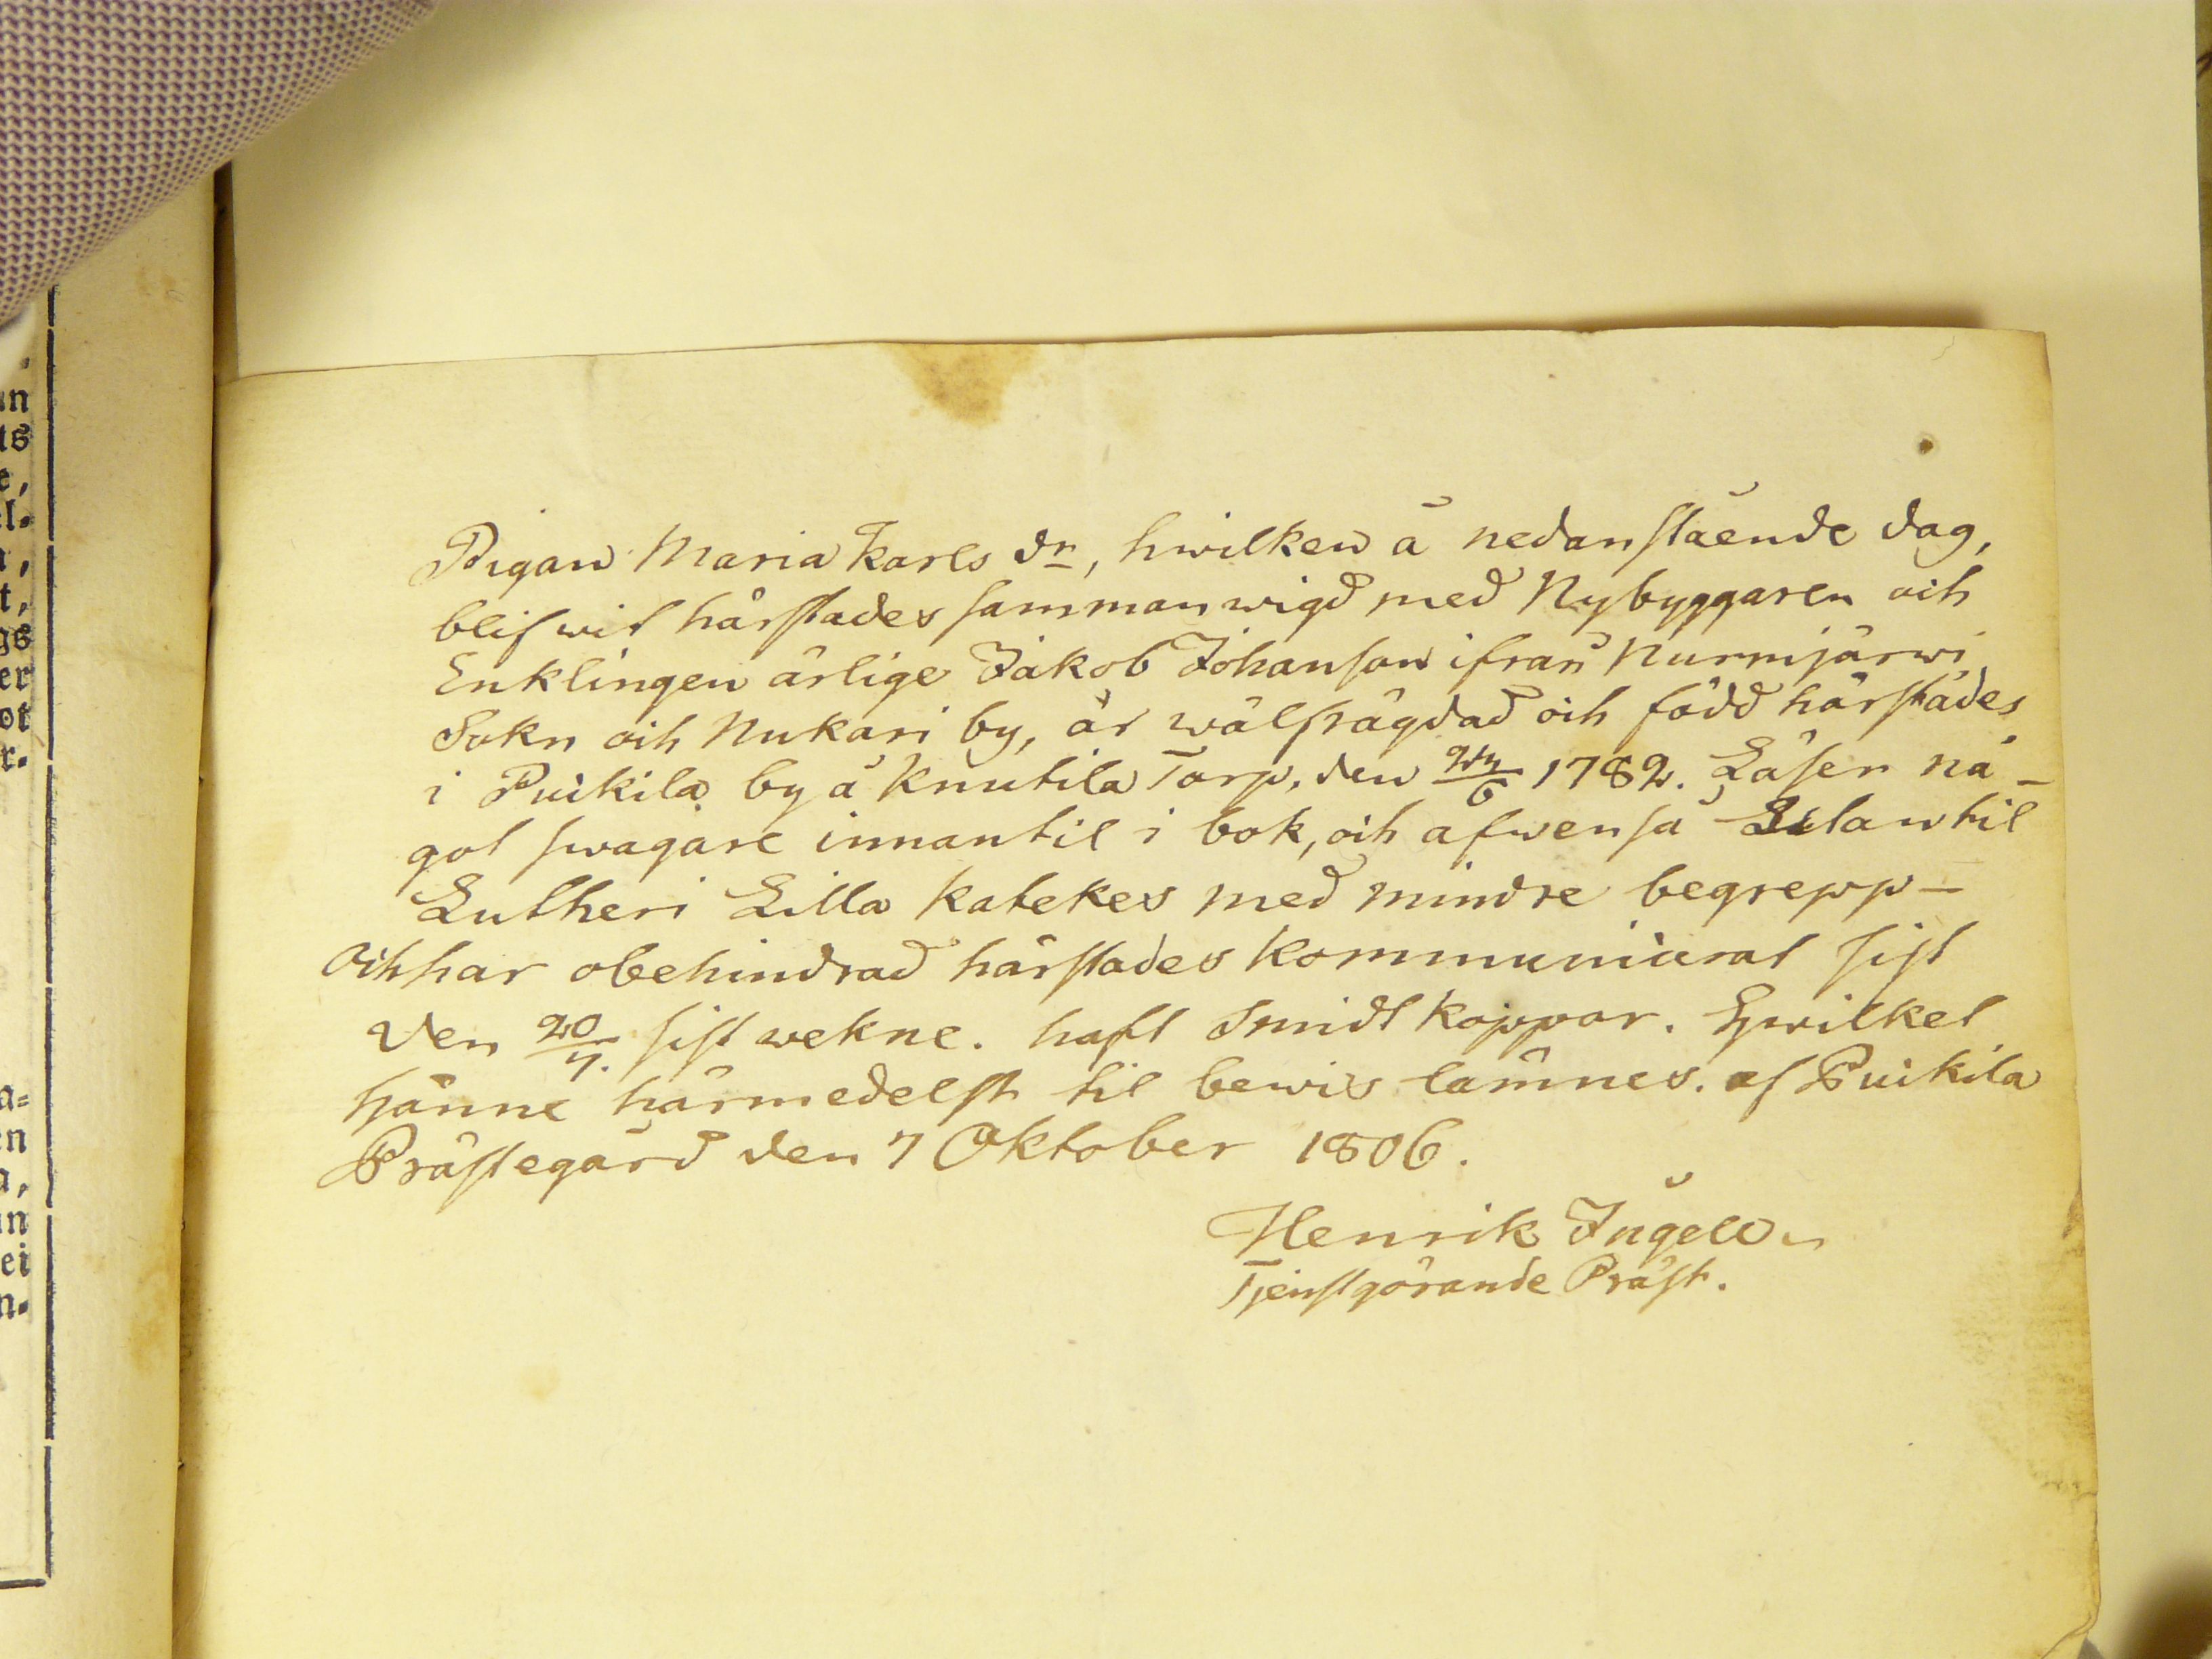 in
ts
e,
el-
a,
t,
gs
er
ot
r.
a-
en
a,
in
ei
n-
Pigan Maria Karls dr, hwilken å nedanstående dag,
blifwit härstädes sammanwigd med Nybyggaren och
Enklingen ärlige Jakob Johanson ifrån Nurmijärwi
Sokn och Nukari by, är wälfrägdad och född härstädes
i Puikila by å Knutila Torp, den 1782. Läser nå-
got swagare innantil i bok, och afwen så utantil
Lutheri Lilla Katekes med mindre begrepp-
och har obehindrad härstädes kommunicerat sist
den 20/7. sistwekne. haft Smidt koppor. Hwilket
hänne härmedelst til bewis lämnes. af Puikila
Prästegård den 7 Oktober 1806.
Henrik
Tjenstgörande Präst.